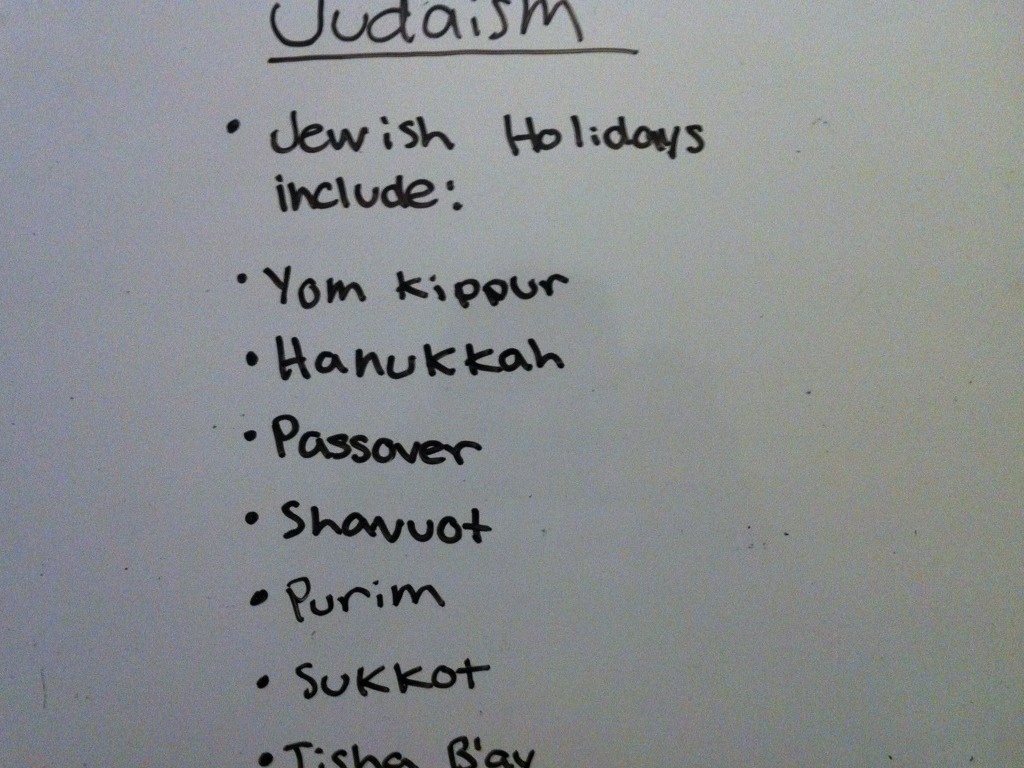 Judaism
• Jewish Holidays
include:
• Yom Kippur
• Hanukkah
• Passover
• Shavuot
• Purim
• Sukkot
• Tisha B'av